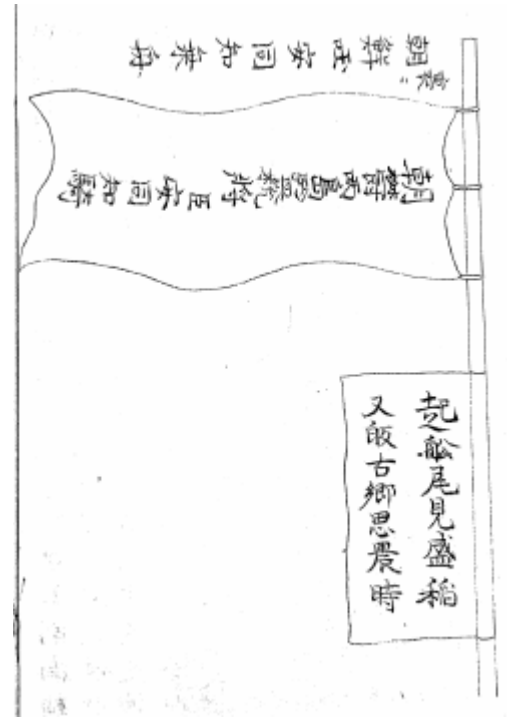 朝鮮臣安同知乗舟
朝鬱両島監税将臣安同知騎
起舩尾見盛稲
又皈古郷思農時